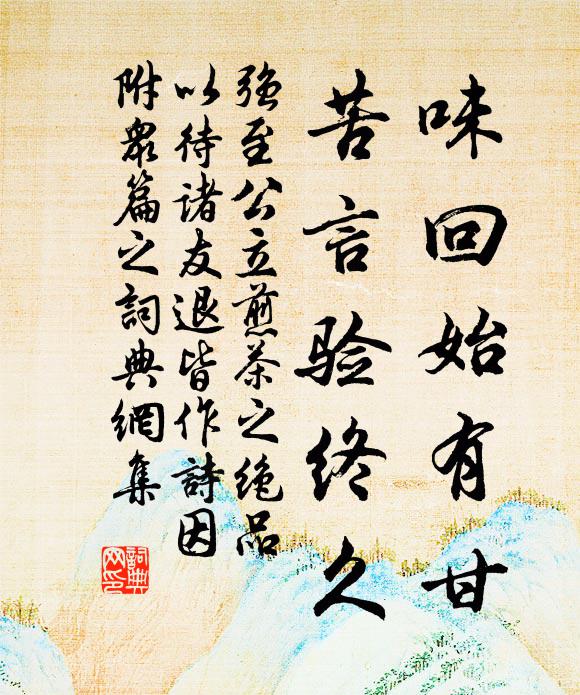 味回始有甘
苦言验终久
强至公立煎茶之绝品
以待诸友退皆作詩因
附衆篇之詞典網集
詞典网印